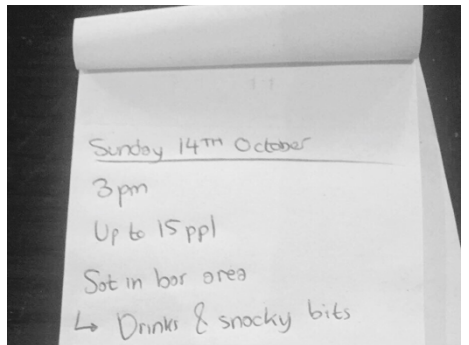 Sunday 14TH October
3pm
Up to 15 ppl
Sat in bar area
↳ Drinks & snacky bits